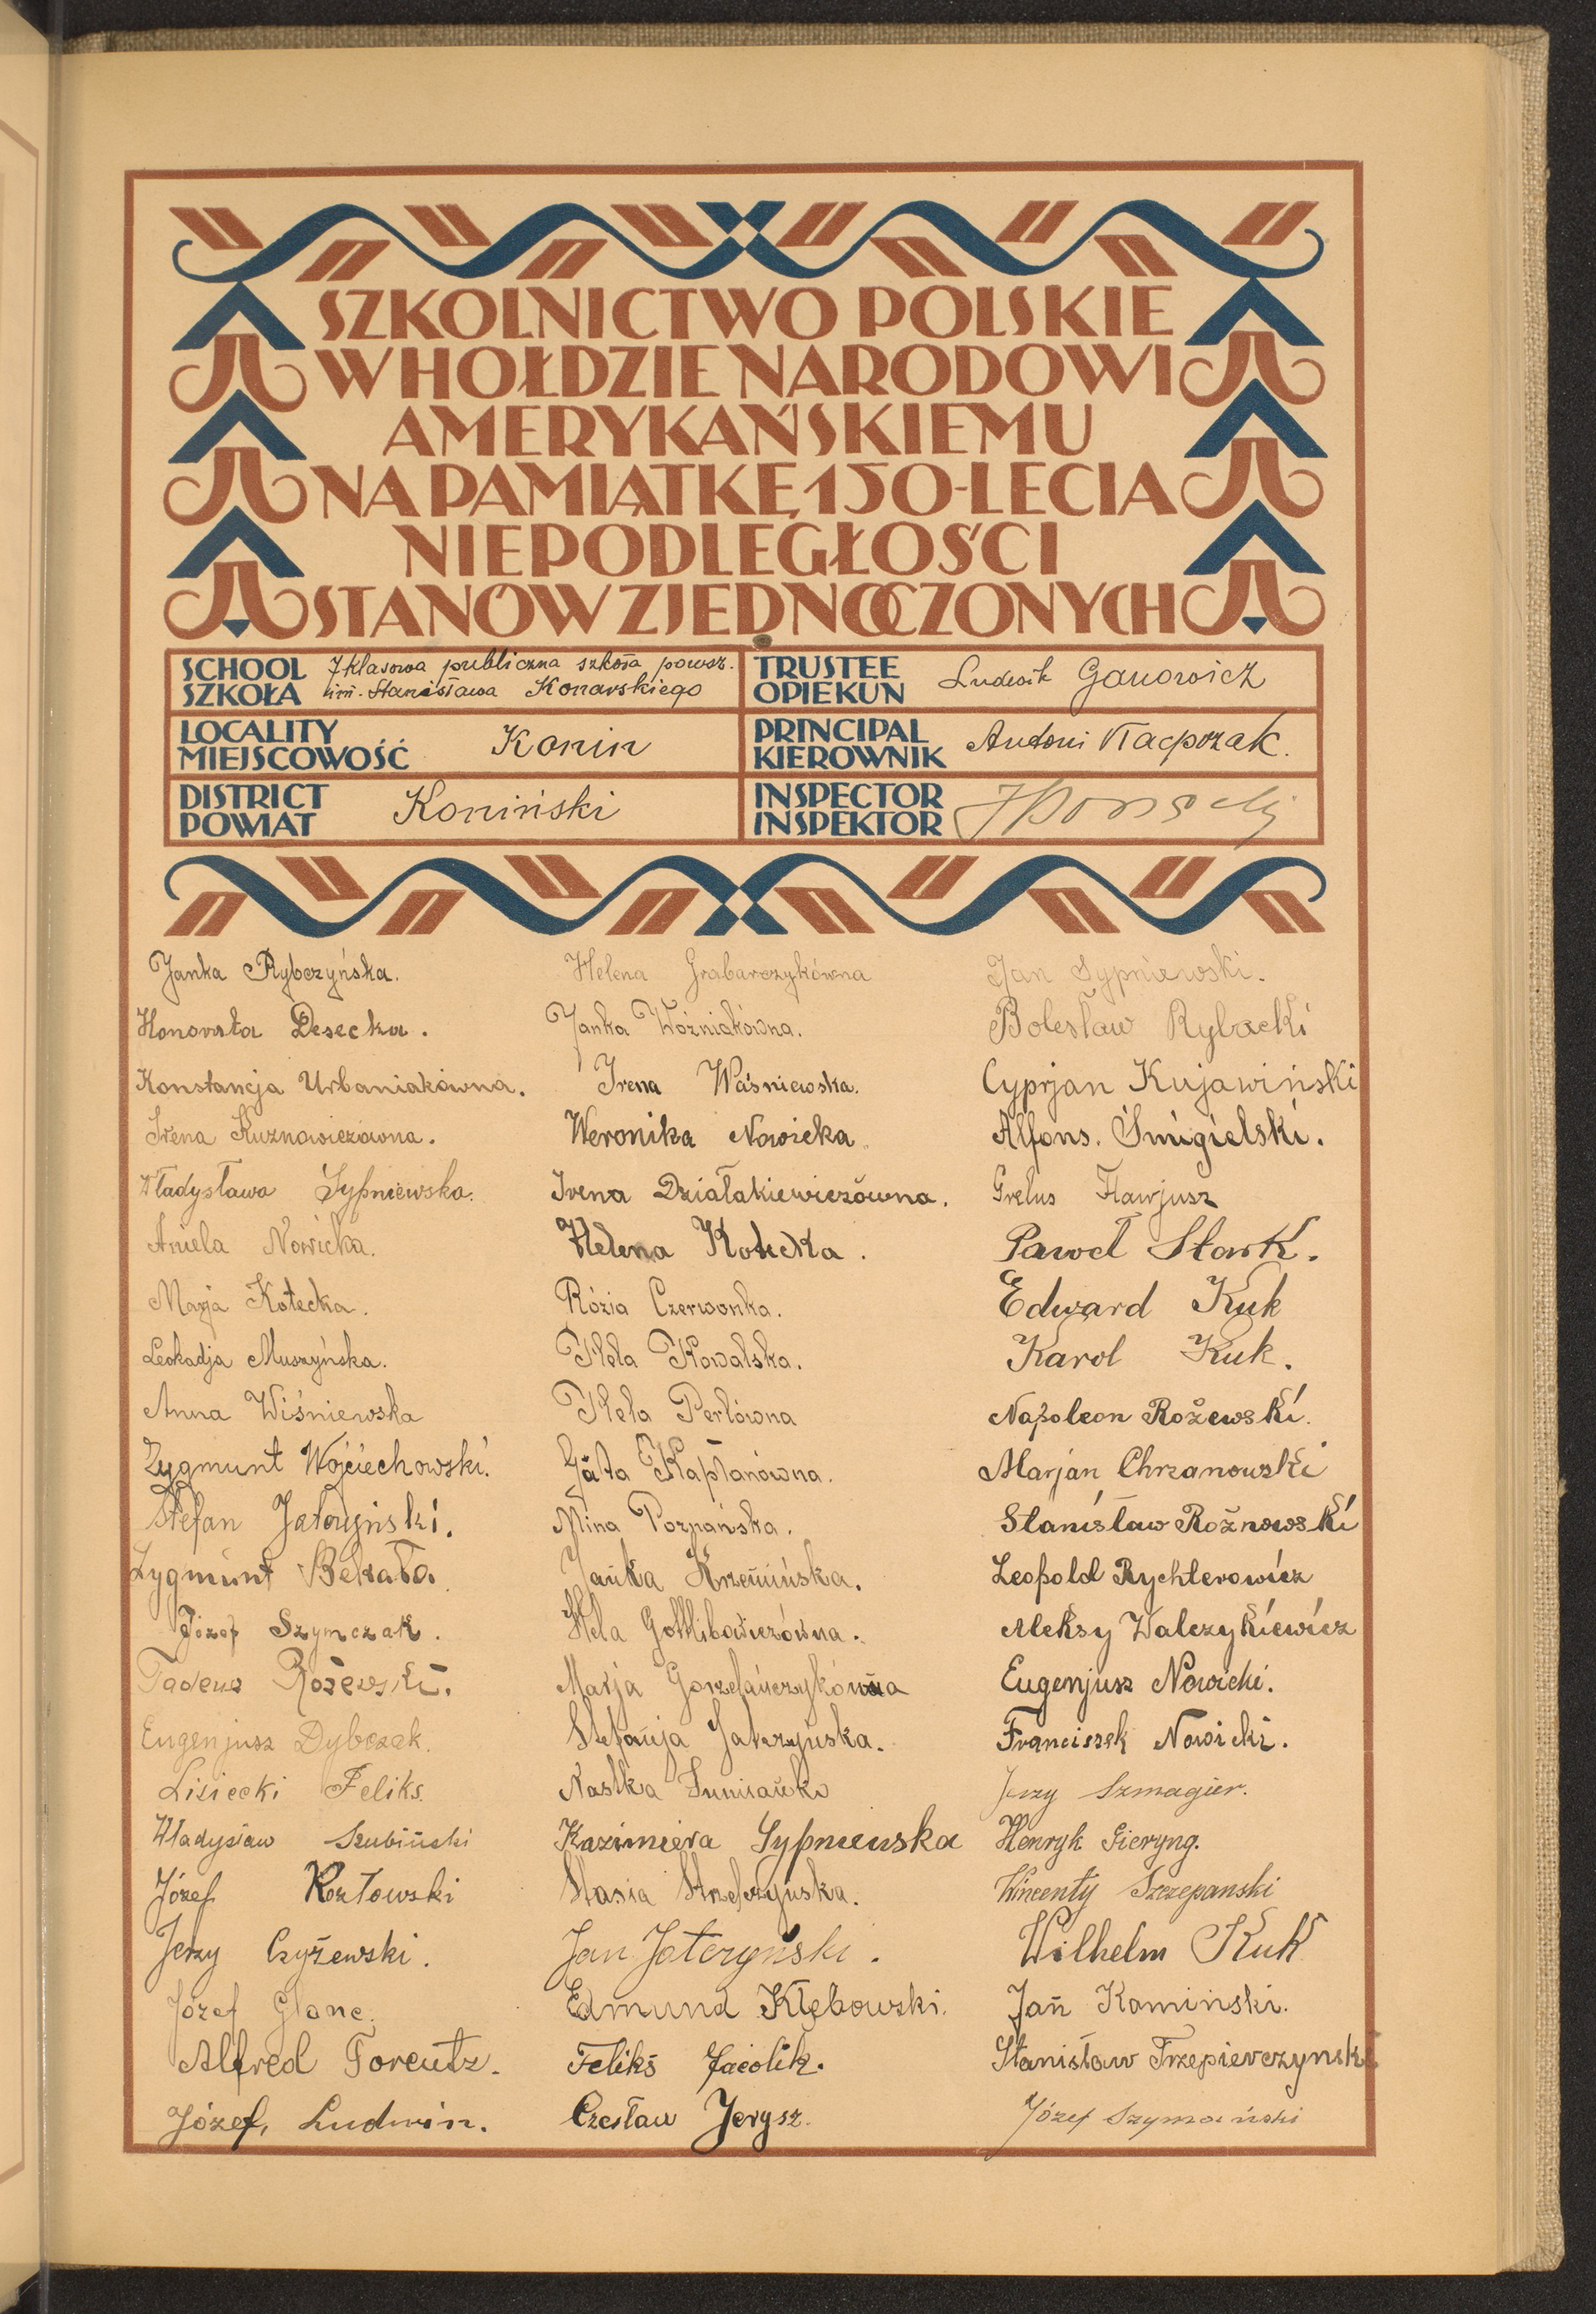 SZKOLNICTWO POLSKIE
W HOŁDZIE NARODOWI
AMERYKAŃSKIEMU
NA PAMIĄTKĘ 150-LECIA
NIEPODLEGŁOŚCI
STANÓW ZJEDNOCZONYCH
SCHOOL 7 klasowa publiczna szkoła powsz.
SZKOŁA im. Stanisława Konarskiego
TRUSTEE
OPIEKUN Ludwik Ganowicz
LOCALITY
MIEJSCOWOŚĆ Konin
PRINCIPAL
KIEROWNIK Antoni Kacprzak.
DISTRICT
POWIAT Koniński
INSPECTOR
INSPEKTOR
Janka Rybczyńska.
Honorata Desecka.
Konstancja Urbaniakówna.
Irena Kuznowiczówna.
Władysława Sypniewska.
Aniela Nowicka.
Marja Kotecka.
Leokadja Muszyńska.
Anna Wiśniewska
Zygmunt Wojciechowski.
Stefan Jatczyński.
Zygmunt Bekała.
Józef Szymczak.
Tadeusz Rożewski.
Eugenjusz Dybczak.
Lisiecki Feliks.
Władysław Szubiński
Józef Kozłowski
Jerzy Czyżewski.
Józef Glanc.
Alfred Forentz.
Józef, Ludwin.
Helena Grabarczykówna
Janka Woźniakówna.
Irena Waśniewska.
Weronika Nowicka.
Irena Działakiewiczówna.
Helena Kotecka.
Rózia Czerwonka.
Hela Kowalska.
Hela Perlówna
Kapłanówna.
Mina Poznańska.
Janka Krzemińska.
Hela Gottlibowiczówna.
Marja Gorzelańczykówna
Stefanja Jatczyńska.
Nastka
Kazimiera Sypniewska
Stasia Strzelczyńska.
Jan Jatczyński.
Edmund Kłębowski.
Feliks Jacolik.
Czesław Jerysz.
Jan Sypniewski.
Bolesław Rybacki
Cyprjan Kujawiński
Alfons. Śmigielski.
Grelus Flawjusz
Paweł Stark.
Edward Kuk
Karol Kuk.
Napoleon Rożewski.
Marjan Chrzanowski
Stanisław Rożnowski
Leopold Rychterowicz
Aleksy Walczykiewicz
Eugenjusz Nowicki.
Franciszek Nowicki.
Jerzy Szmagier.
Henryk Gieryng.
Wincenty Szczepanski
Wilhelm Kuk
Jan Kaminski.
Stanisław Trzepierczynski
Józef Szymański